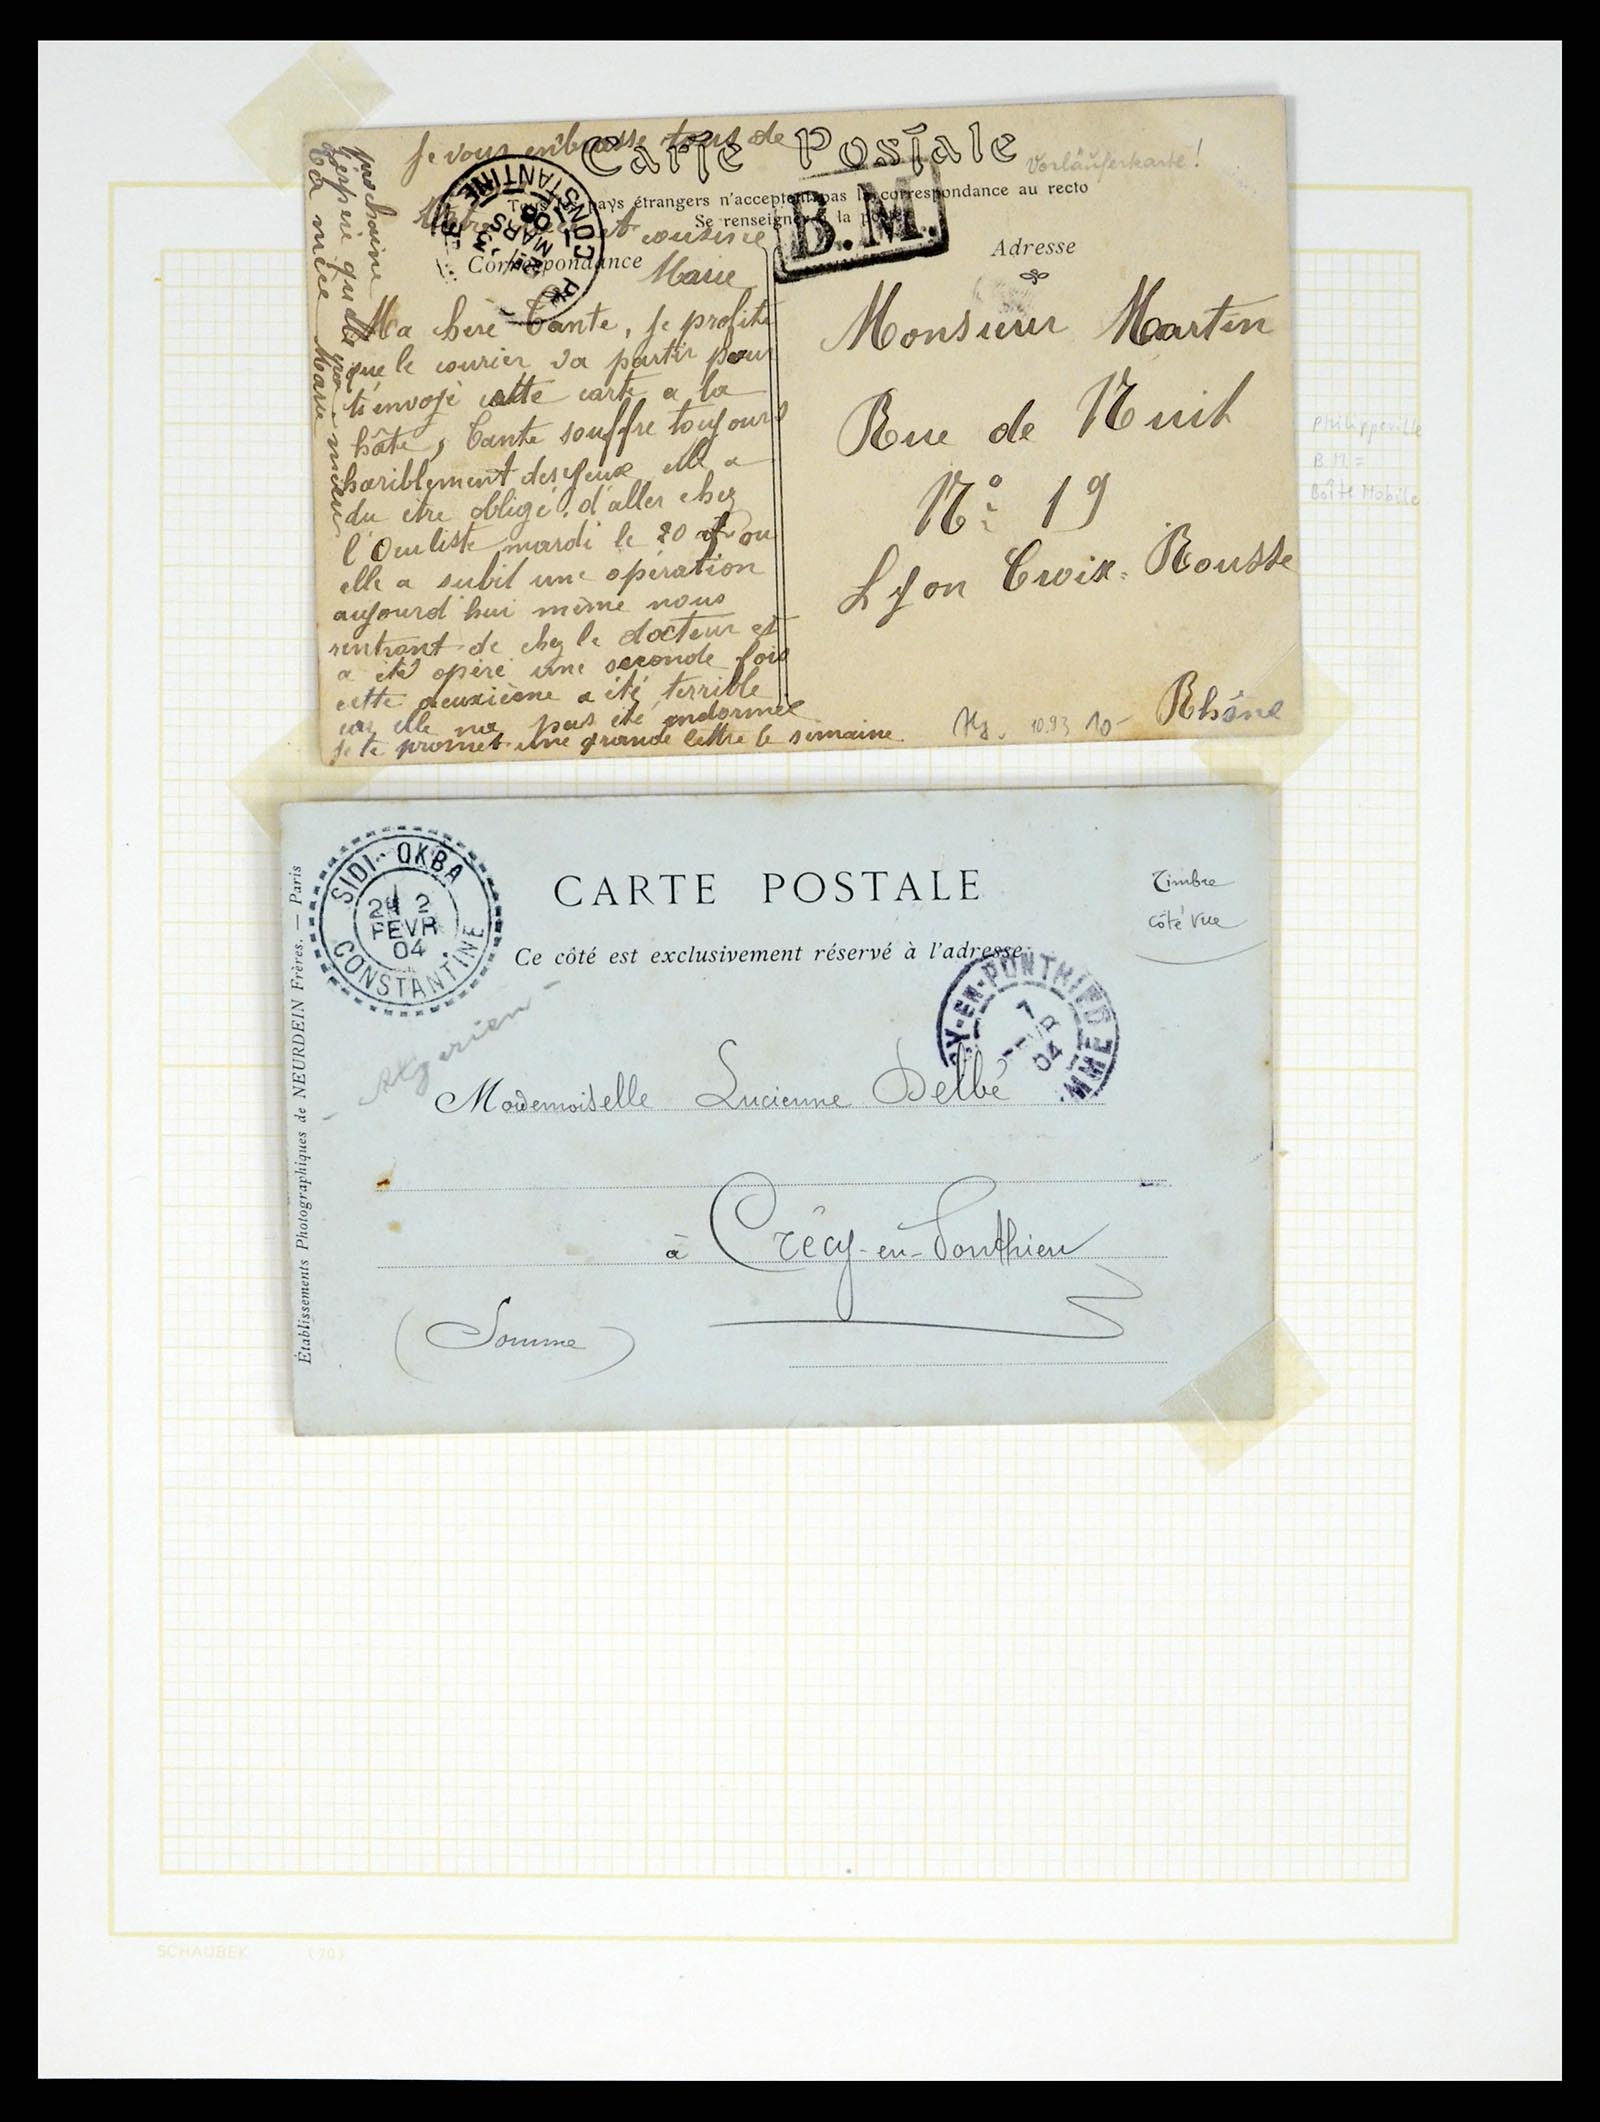 Je vous embrasse tous de
Carte Postale
Vorläuferkarte!
Tous les pays étrangers n'acceptent pas la correspondance au recto
Se renseigner à la poste
B.M.
et cousine
CONSTANTINE
MARS
Correspondance
Adresse
Marie
prochaine
j'espère qu
Ta nièce Marie
Ma chère Tante, je profite
que le courier va partir pour
t'envoyé cette carte a la
hâte, Tante souffre toujours
horiblement des yeux elle a
du être obligé d'aller chez
l'Oculiste mardi le 20 ou
elle a subit une opération
aujourd'hui même nous
rentrant de chez le docteur et
a été opéré une seconde fois
cette deuxième a été terrible
car elle na pas été endormée
je te promet une grande lettre la semaine
Monsieur Martin
Rue de Nuit
N° 19
Lyon Croix-Rousse
Rhône
10.93 10-
Philippeville
B.M. =
Boîte Mobile
SIDI-OKBA
2
FEVR
04
CONSTANTINE
CARTE POSTALE
Timbre
côté vue
Ce côté est exclusivement réservé à l'adresse
Y-EN-PONTHIEU
7
04
MME
- Algerien -
Établissements Photographiques de NEURDEIN Frères. — Paris
Mademoiselle Lucienne Delbé
à Crécy-en-Ponthieu
(Somme)
SCHAUBEK (70)